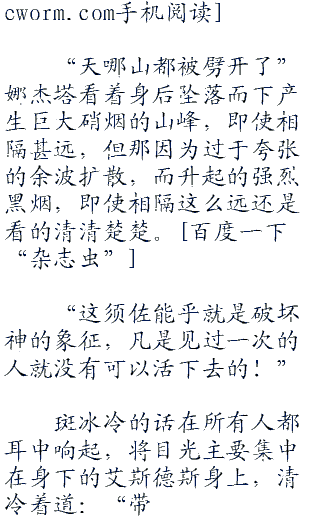 cworm.com手机阅读]
“天哪山都被劈开了”
娜杰塔看着身后坠落而下产
生巨大硝烟的山峰，即使相
隔甚远，但那因为过于夸张
的余波扩散，而升起的强烈
黑烟，即使相隔这么远还是
看的清清楚楚。[百度一下
“杂志虫”]
“这须佐能乎就是破坏
神的象征，凡是见过一次的
人就没有可以活下去的！”
斑冰冷的话在所有人都
耳中响起，将目光主要集中
在身下的艾斯德斯身上，清
冷着道：“带